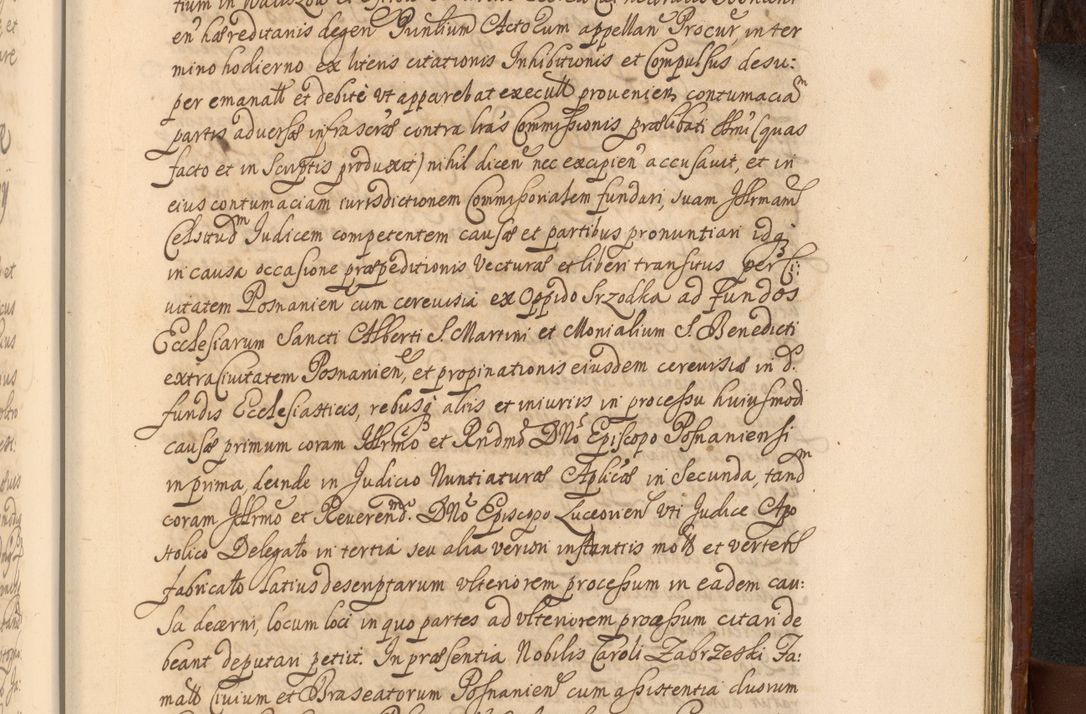 en hæreditariis degen Punlium Actorum appellan Procur, in ter
mino hodierno ex literis citationis Inhibitionis et Compulsus desu:
per emanatt et debite ut apparebat executt provenien contumaciam
partis adversæ infrascræ contra lras Commissionis prælibati Illmi (quas
facto et in scriptis produxit) nihil dicen nec excipien accusavit, et in
eius contumaciam iurisdictionem Commissorialem fundari, suam Illrmam
Celsitudm Judicem competentem causæ et partibus pronuntiari idq
in causa occasione præpeditionis Vecturæ et liberi transitus per Ci:
uitatem Posnanien cum cerevisia ex Oppido Srzodka ad Fundos
Ecclesiarum Sancti Alberti S. Martini et Monialium S. Benedicti
extra Civitatem Posnanien, et propinationis eiusdem cerevisiæ in d.
fundis Ecclesiasticis, rebusq aliis et iniuriis in processu huiusmodi
causæ primum coram Illrmo et Rndmo Dno Episcopo Posnaniensi
in prima, deinde in Judicio Nuntiaturæ Aplicæ in Secunda, tandm
coram Illrmo et Reverendmo Dno Episcopo Luceorien uti Judice Apo
stolico Delegato in tertia seu alia veriori instantiis mott et vertentt
fabricato latius descriptarum ulteriorem processum in eadem cau:
sa decerni, locum loci in quo partes ad ulteriorem processum citari de
beant deputari petiit. In præsentia Nobilis Caroli Zabrzeski Fa:
matt Civium et Braseatorum Posnanien cum assistentia duorum